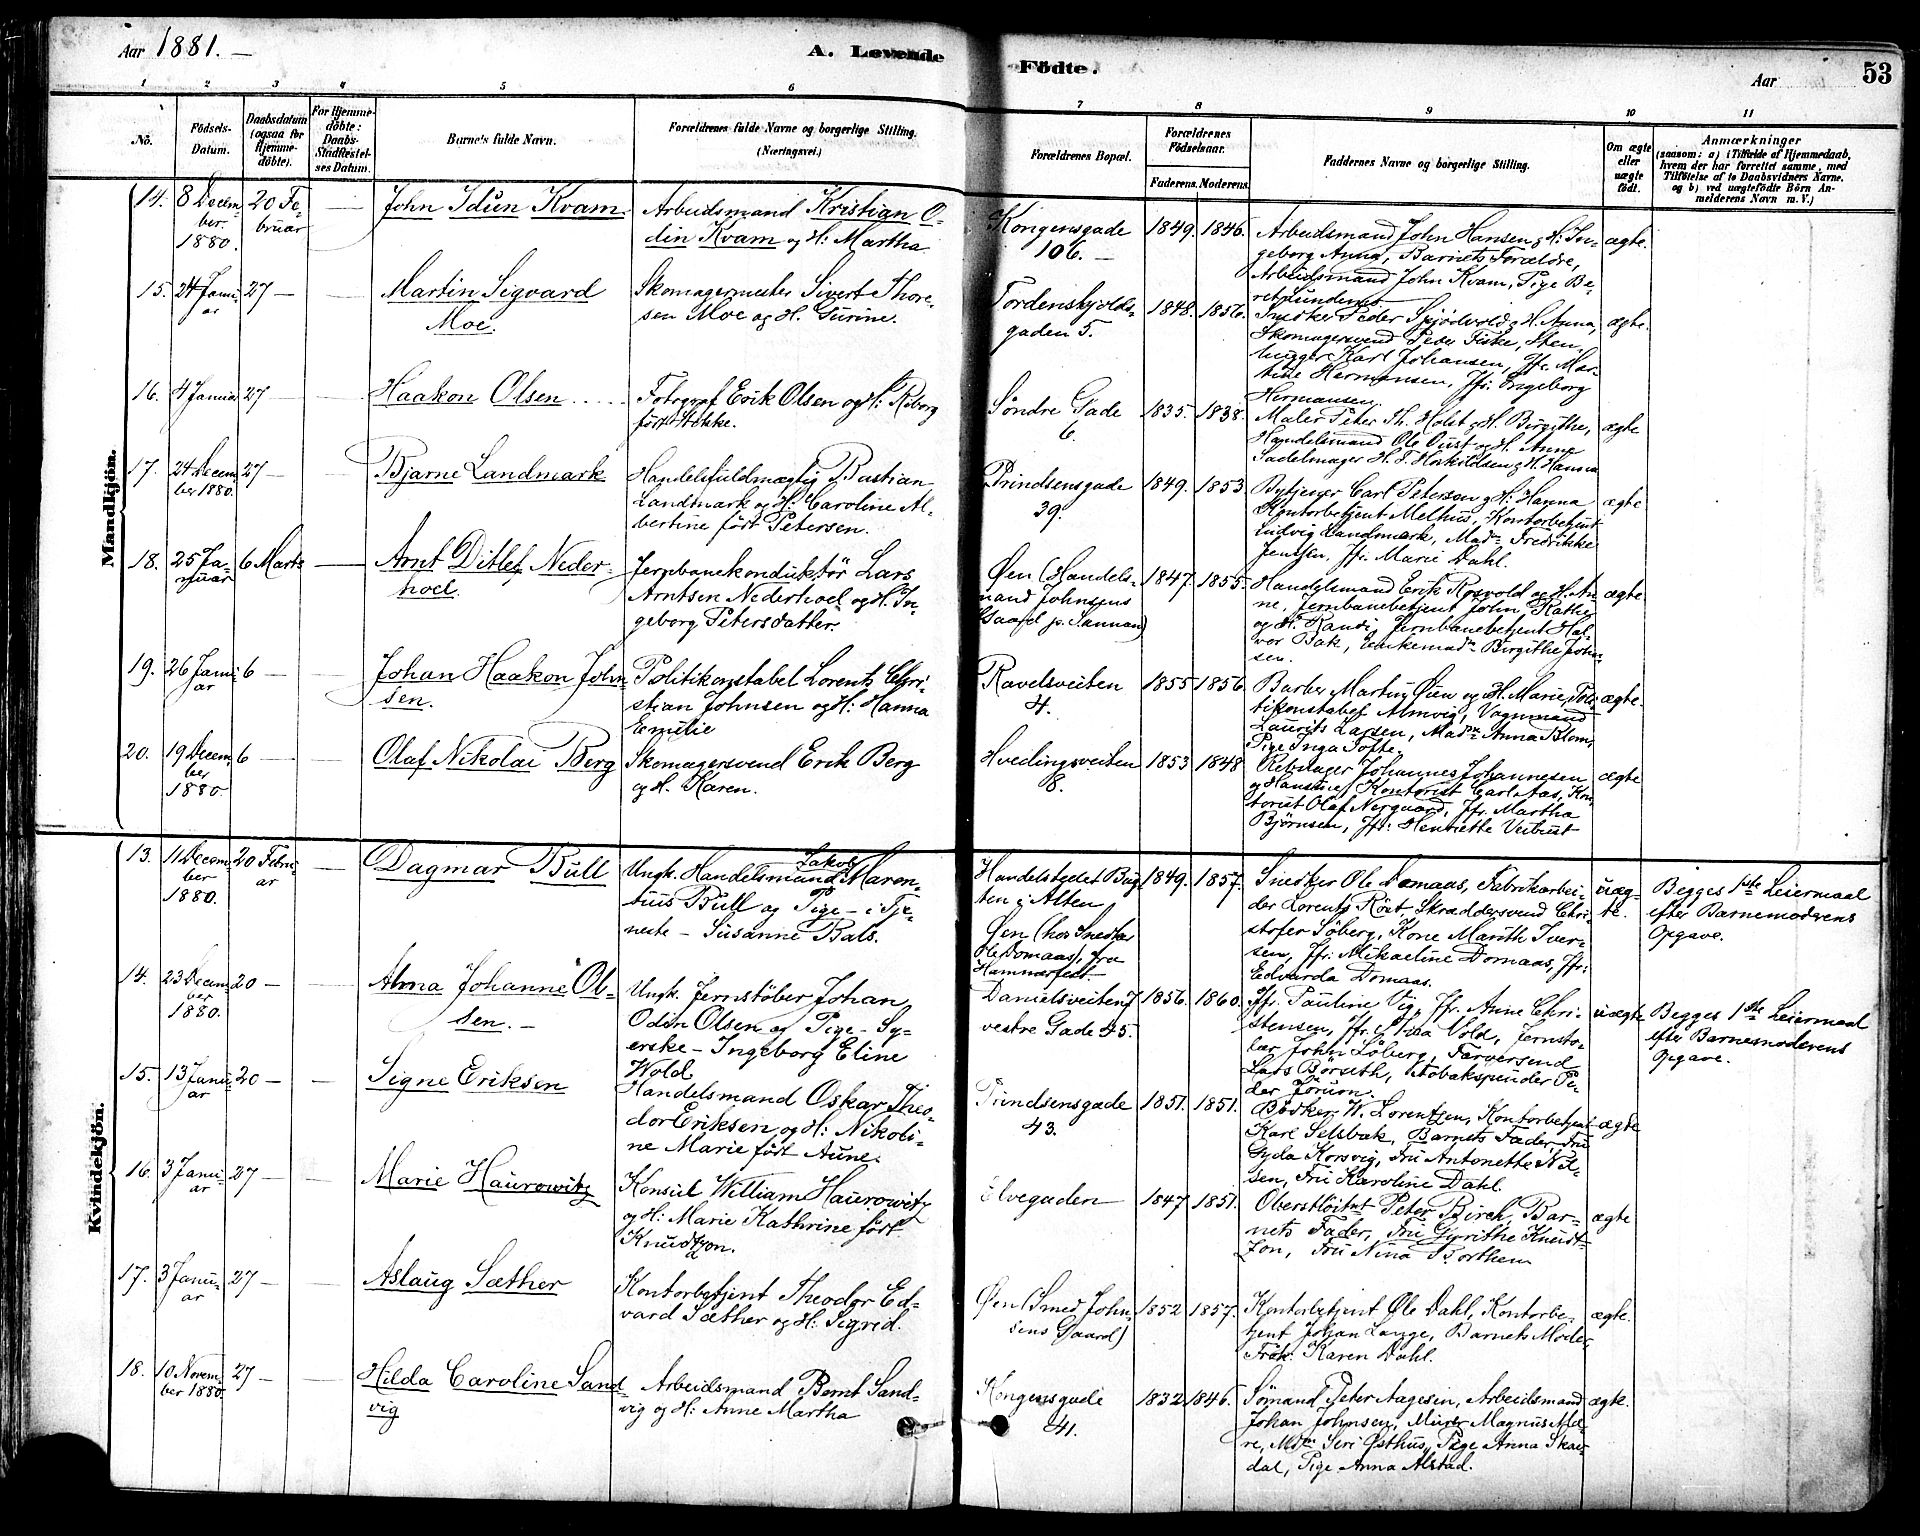 Aar 1881.
A. Levende Födte.
Aar
53
1 2 3 4 5 6 7 8 9 10 11
No.
Födsels-Datum.
Daabsdatum (ogsaa for Hjemme-döbte).
For Hjemme-döbte: Daabs-Stadfæstel-ses Datum.
Barnets fulde Navn.
Forældrenes fulde Navne og borgerlige Stilling. (Næringsvei.)
Forældrenes Bopæl.
Forældrenes Födselsaar.
Faderens. Moderens.
Faddernes Navne og borgerlige Stilling.
Om ægte eller uægte födt.
Anmærkninger
(saasom: a) i Tilfælde af Hjemmedaab,
hvem der har forrettet samme, med
Tilföielse af to Daabsvidners Navne,
og b) ved uægtefödte Börn An-
melderens Navn m. V.)
Mandkjön.
14. 8 Decem-
ber
1880.
20 Fe-
bruar
John Idun Kvam.
Arbeidsmand Kristian O-
din Kvam og H: Martha
Kongensgade
106.
1849. 1846.
Arbeidsmand John Hansen og H: In-
geborg Anna, Barnets Forældre,
Arbeidsmand John Kvam, Pige Be-
ret
ægte.
15. 24 Janu-
ar
27
Martin Sigvard
Moe.
Skomagermester Sivert Thore-
sen Moe og H. Gurine.
Tordenskjolds-
gaden 5.
1848. 1856.
Snedker Peder Spjødvold og H. Anna,
Skomagersvend Peder Fiske, Sten-
hugger Karl Johansen, Jfr. Mar-
tine Hermansen, Jfr. Ingeborg
Hermansen.
ægte.
16. 4 Januar
27
Haakon Olsen
Fotograf Erik Olsen og H: Reborg
født Stokke.
Søndre Gade
6.
1835. 1838.
Maler Peter Th. Holst og H. Birgithe,
Handelsmand Ole Oust og H. Anne
Sadelmager H. T. Horkildsen og H. Hanna
ægte
17. 24 Decem-
ber 1880.
27
Bjarne Landmark
Handelsfuldmægtig Bastian
Landmark og H: Caroline Al-
bertine født Petersen.
Prindsensgade
39.
1849. 1853
Bytjener Carl Peterson og H: Hanna
Kontorbetjent Melhus, Kontorbetjent
Ludvig Landmark, Madm Fredrikke
Jenssen, Jfr. Marie Dahl.
ægte
18. 25 Ja-
nuar
6 Marts
Arnt Ditlef Neder-
hoel.
Jernbanekonduktør Lars
Arntsen Nederhoel og H. In-
geborg Petersdatter.
Øen (Handels-
mand Johnsens
Gaard p. Sannan)
1847. 1855.
Handelsmand Erik Rosvold og H. An-
ne, Jernbanebetjent John Rathe
og H: Randi, Jernbanebetjent Hal-
vor Bak, Enkemadm Birgithe John-
sen.
ægte.
19. 26 Janu-
ar
6
Johan Haakon John-
sen.
Politikonstabel Lorents Chri-
stian Johnsen og H: Hanna
Emilie
Ravelsveiten
4.
1855 1856
Barber Martin Øien og H. Marie, Poli-
tikonstabel Almvig, Vognmand
Laurits Larsen, Madm Anna Blom,
Pige Inga Tofte.
ægte.
20. 19 Decem-
ber
1880.
6
Olaf Nikolai Berg
Skomagersvend Erik Berg
og H. Karen.
Hvedingsveiten
8.
1853 1848
Rebslager Johannes Johannesen
og Hanstine, Kontorist Carl Aas, Kon-
torist Olaf Nergaard, Jfr. Martha
Bjørnsen, Jfr: Henriette Veibust
ægte
Kvindekjön.
13. 11 Decem-
ber
1880.
20 Febru-
ar
Dagmar Bull
Ungk. Handelsmand Jakob Maren-
tius Bull og Pige - i Tje-
neste - Susanne Bals.
Handelsstedet Bug-
ten i Alten
Øen (hos Snedker
Ole Domaas), fra
Hammerfest
1849. 1857.
Snedker Ole Domaas, Fabrikarbei-
der Lorents Röst, Skræddersvend Chri-
stofer Söberg, Kone Marith Iver-
sen, Jfr. Mikaeline Domaas, Jfr:
Edvarda Domaas.
uæg-
te.
Begges 1ste Leiermaal
efter Barnemoderens
Opgave.
14. 23 Decem-
ber
1880.
20
Alma Johanne Ol-
sen.
Ungk. Jernstøber Johan
Odin Olsen og Pige - Sy-
erske - Ingeborg Eline
Wold
Danielsveiten 7
vestre Gade 45.
1856. 1860.
Jfr. Pauline Vig, Jfr. Anne Chri-
stensen, Jfr. Stina Vold, Jernstø-
ber John Löberg, Farversvend
Lars Börseth, Tobakspinder Pe-
der Joruon.
uægte
Begges 1ste Leiermaal
efter Barnemoderens
Opgave.
15. 13 Janu-
ar
20
Signe Eriksen
Handelsmand Oskar Theo-
dor Eriksen og H: Nikoli-
ne Marie født Aune.
Prindsensgade
43.
1851. 1851.
Bödker W. Lorentzen, Kontorbetjent
Karl Selsbak, Barnets Fader, Fru
Gyda Korsvig, Fru Antonette Nil-
sen, Fru Karoline Dahl.
ægte
16. 3 Janu-
ar
27
Marie Haurowitz
Konsul William Haurowitz
og H: Marie Kathrine født
Knudtzon.
Elvegaden
1847 1851.
Oberstlöitnt Peter Birch, Bar-
nets Fader, Fru Gyrithe Knudt-
zon, Fru Nina Borthen
ægte
17. 3 Janu-
ar
27
Aslaug Sæther
Kontorbetjent Theodor Ed-
vard Sæther og H: Sigrid.
Øen (Smed John-
sens Gaard)
1852 1857.
Kontorbetjent Ole Dahl, Kontorbe-
tjent Johan Lange, Barnets Moder,
Frøk. Karen Dahl.
ægte.
18. 10 Novem-
ber 1880.
27
Hilda Caroline Sand-
vig
Arbeidsmand Bernt Sand-
vig og H: Anne Martha
Kongensgade
41.
1832 1846.
Sømand Peter Aagesen, Arbeidsmand
Johan Johnsen, Murer Magnus Alde-
re, Mdm Seri Østhus, Pige Anna Skar-
dal, Pige Anna Alstad.
ægte.